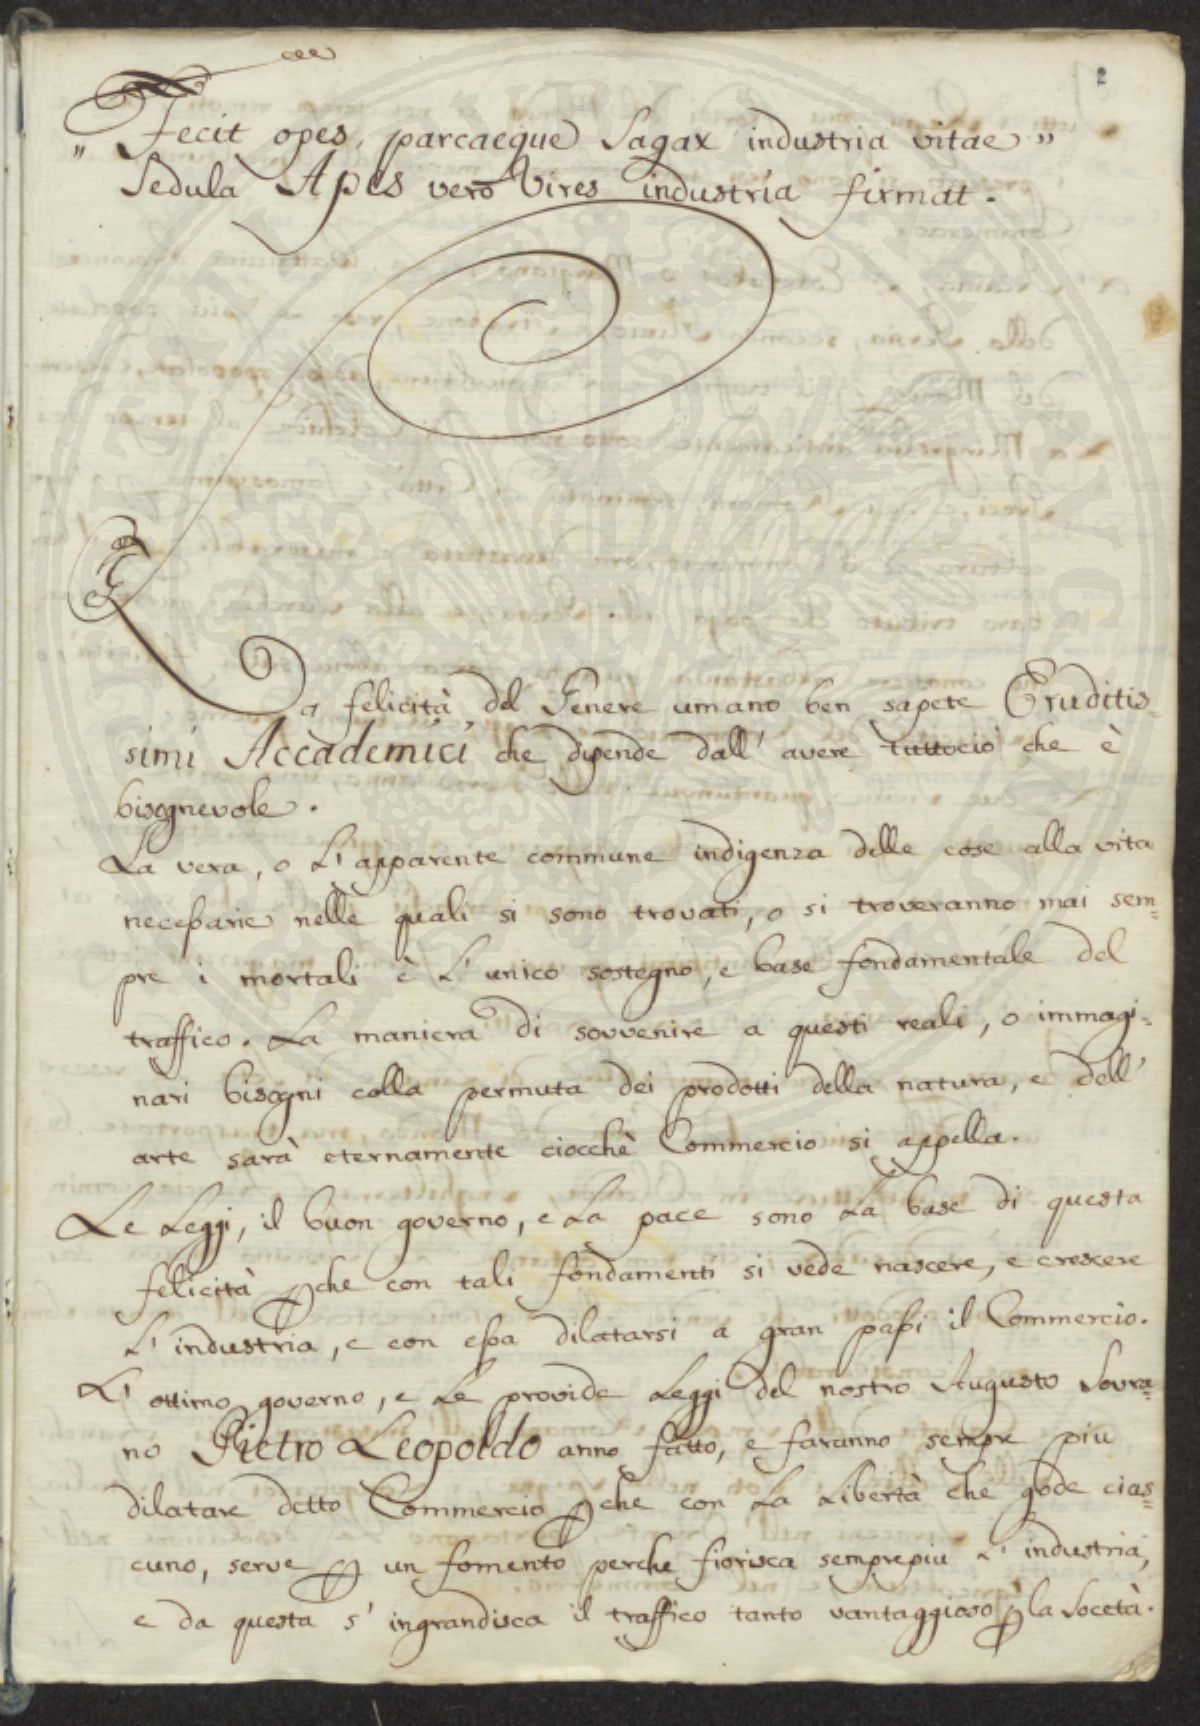 2
„ Fecit opes, parcaeque Sagax industria vitae "
Sedula Apes vero Vires industria firmat.
La felicità del Genere umano ben sapete Eruditis-
simi Accademici che dipende dall' avere tuttociò che è
bisognevole.
La vera, o L' apparente commune indigenza delle cose alla vita
necessarie nelle quali si sono trovati, o si troveranno mai sem=
pre i mortali è L' unico sostegno, e base fondamentale del
traffico. La maniera di sovvenire a questi reali, o immagi=
nari bisogni colla permuta dei prodotti della natura, e dell'
arte sarà eternamente ciocchè Commercio si appella.
Le Leggi, il buon governo, e La pace sono La base di questa
felicità pche con tali fondamenti si vede nascere, e crescere
L' industria, e con essa dilatarsi a gran passi il Commercio.
L' ottimo governo, e Le provide Leggi del nostro Augusto Sovra=
no Pietro Leopoldo anno fatto, e faranno sempre piu
dilatare detto Commercio pche con La Libertà che gode cias=
cuno, serve p un fomento perche fiorisca semprepiu L' industria,
e da questa s' ingrandisca il traffico tanto vantaggioso p la Socetà.